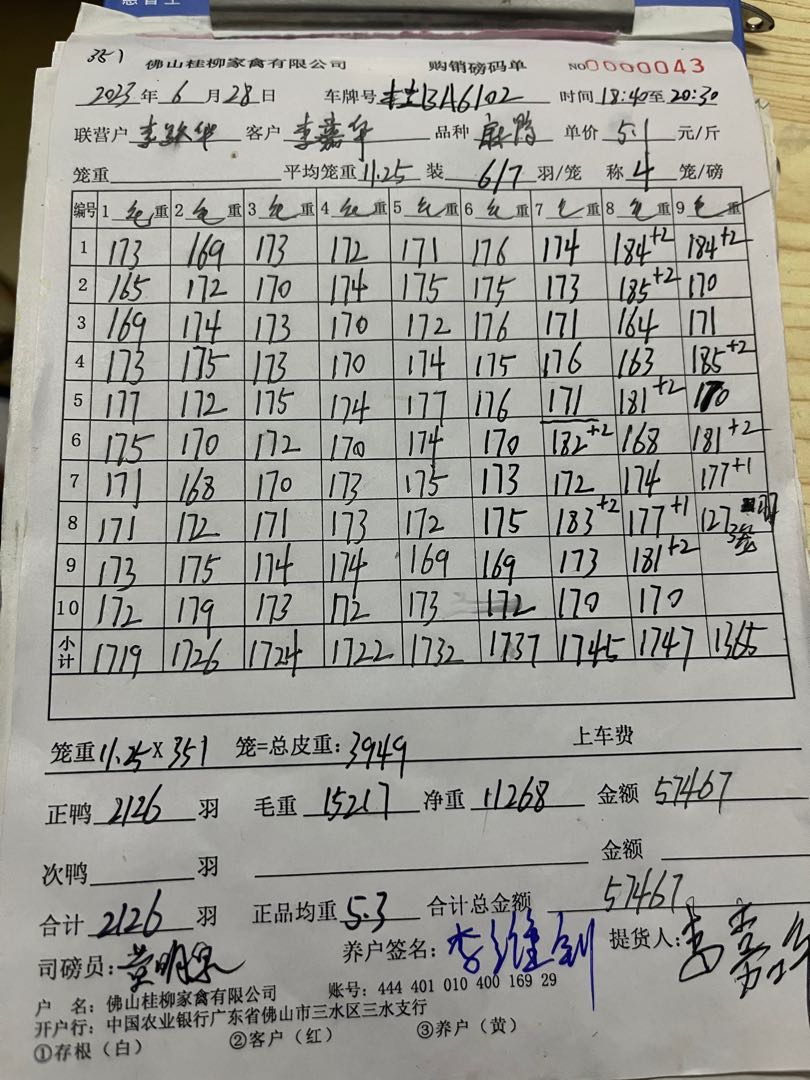 351
佛山桂柳家禽有限公司 购销磅码单 NO0000043
2023年6月28日 车牌号 BA6102 时间18:40至20:30
联营户 李 华 客户 李嘉华 品种 鸭 单价 5.1 元/斤
笼重 平均笼重 11.25 装 6/7 羽/笼 称 4 笼/磅
编号 1 毛重 2 毛重 3 毛重 4 毛重 5 毛重 6 毛重 7 毛重 8 毛重 9 毛重
1 173 169 173 172 171 176 174 184+2 184+2
2 165 172 170 174 175 175 173 185+2 170
3 169 174 173 170 172 176 171 164 171
4 173 175 173 170 174 175 176 163 185+2
5 177 172 175 174 177 176 171 181+2 170
6 175 170 172 170 174 170 182+2 168 181+2
7 171 168 170 173 175 173 172 174 177+1
8 171 172 171 173 172 175 183+2 177+1 127 3笼
9 173 175 174 174 169 169 173 181+2
10 172 179 173 172 173 172 170 170
小计 1719 1726 1724 1722 1732 1737 1745 1747 1365
笼重 11.25 X 351 笼=总皮重: 3949 上车费
正鸭 2126 羽 毛重 15217 净重 11268 金额 57467
次鸭 羽 金额
合计 2126 羽 正品均重 5.3 合计总金额 57467
司磅员: 黄明 养户签名: 李维钊 提货人: 李嘉华
户 名: 佛山桂柳家禽有限公司 账号: 444 401 010 400 169 29
开户行: 中国农业银行广东省佛山市三水区三水支行
①存根（白） ②客户（红） ③养户（黄）